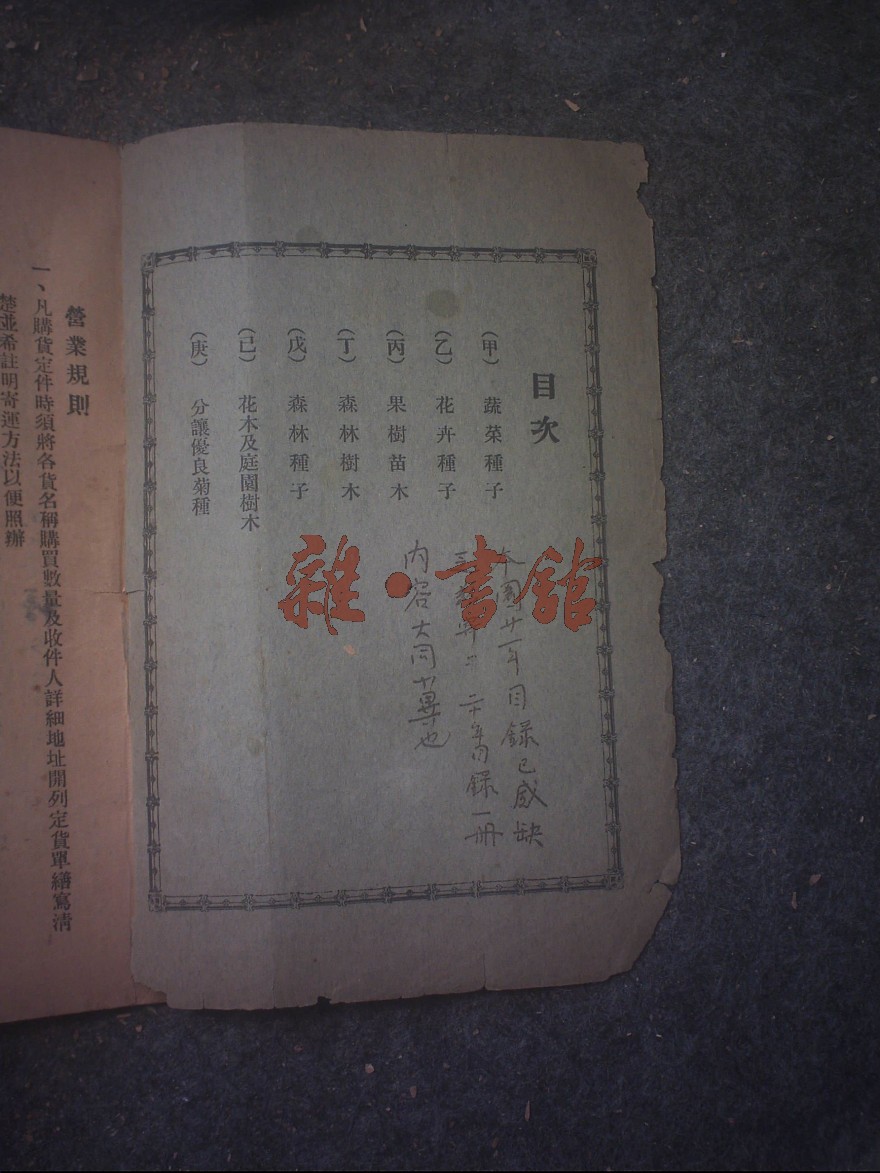 目次
（甲）蔬菜種子
（乙）花卉種子
（丙）果樹苗木
（丁）森林樹木
（戊）森林種子
（己）花木及庭園樹木
（庚）分讓優良菊種
本園廿一年目錄已感缺
二十年目錄一冊
內容大同小異也
雜·書館
營業規則
一、凡購貨定件時須將各貨名稱購買數量及收件人詳細地址開列定貨單繕寫清
楚並希註明寄運方法以便照辦